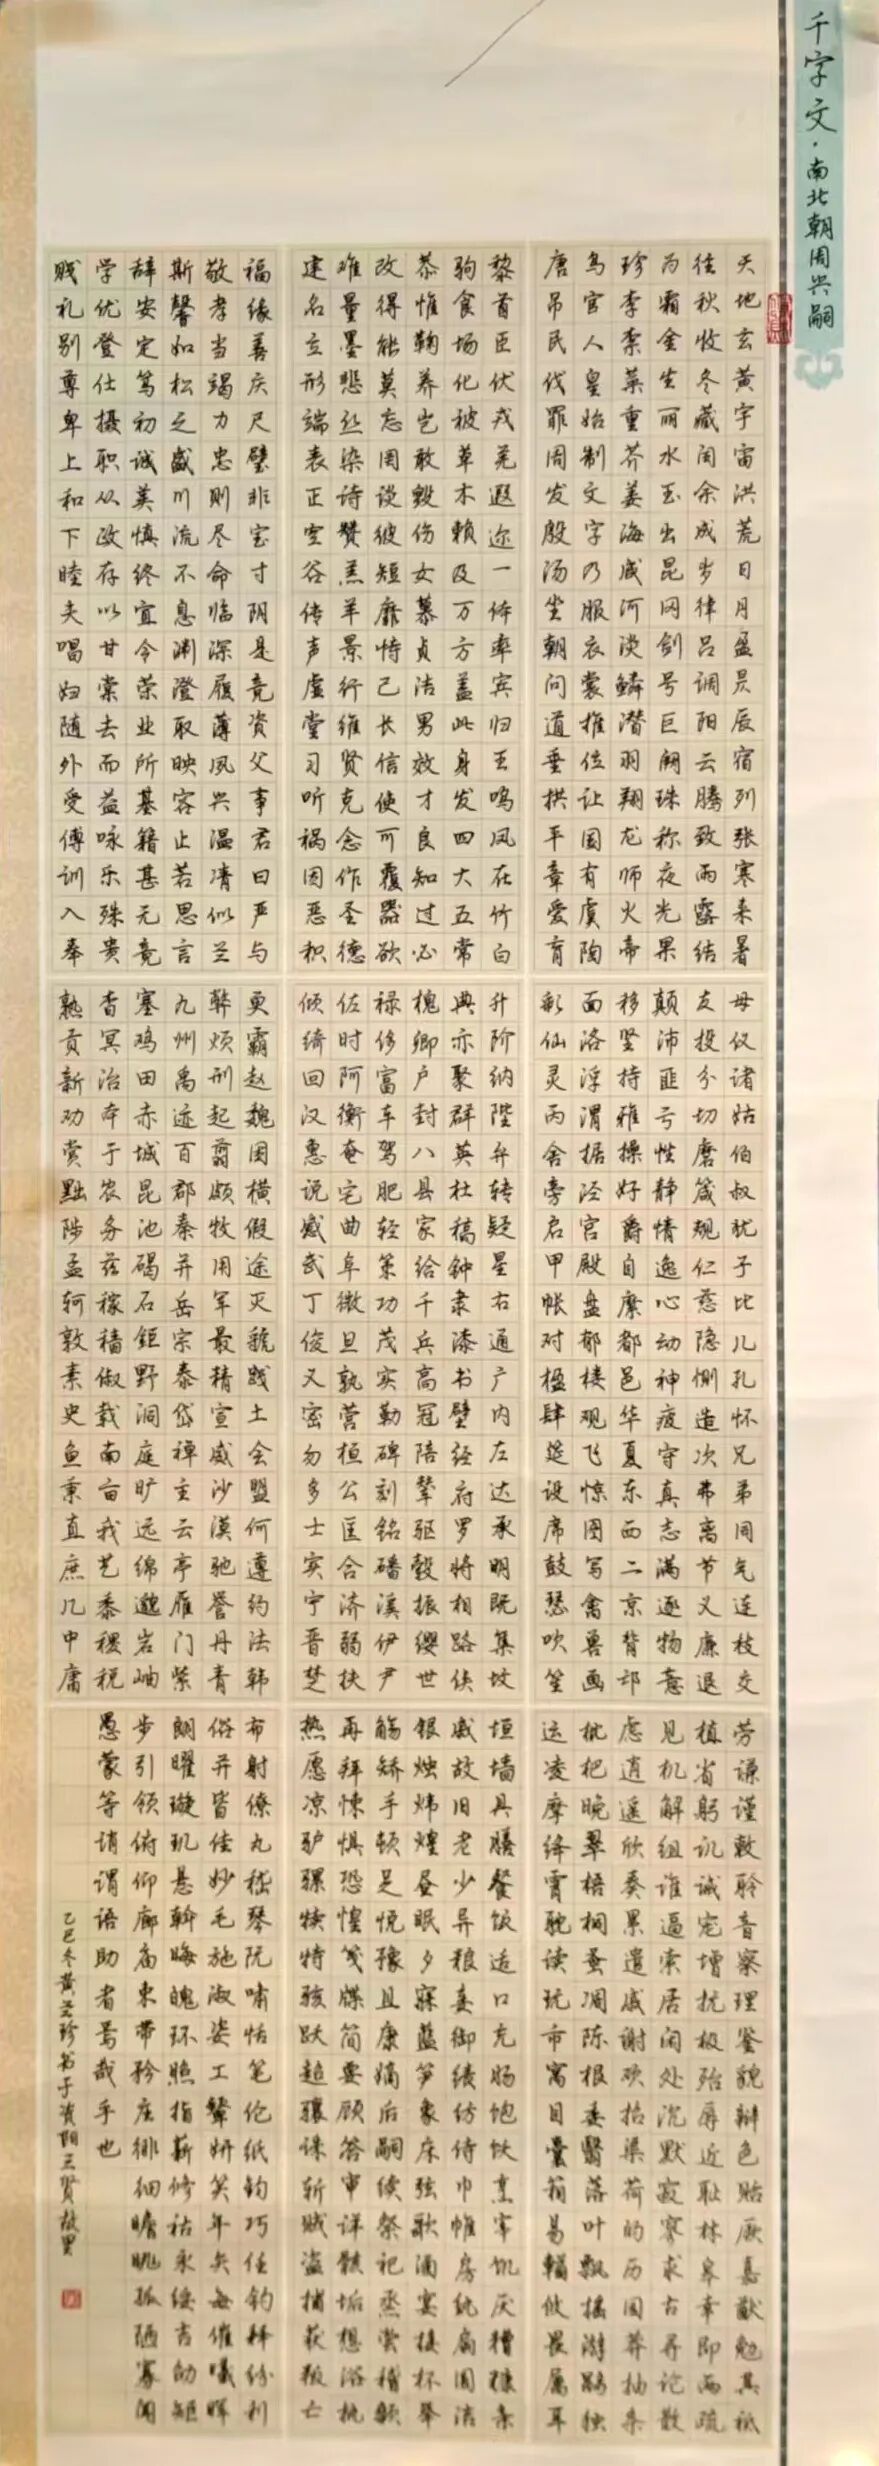 千字文·南北朝周兴嗣
天地玄黄宇宙洪荒日月盈昃辰宿列张寒来暑
往秋收冬藏闰余成岁律吕调阳云腾致雨露结
为霜金生丽水玉出昆冈剑号巨阙珠称夜光果
珍李柰菜重芥姜海咸河淡鳞潜羽翔龙师火帝
鸟官人皇始制文字乃服衣裳推位让国有虞陶
唐吊民伐罪周发殷汤坐朝问道垂拱平章爱育
黎首臣伏戎羌遐迩一体率宾归王鸣凤在竹白
驹食场化被草木赖及万方盖此身发四大五常
恭惟鞠养岂敢毁伤女慕贞洁男效才良知过必
改得能莫忘罔谈彼短靡恃己长信使可覆器欲
难量墨悲丝染诗赞羔羊景行维贤克念作圣德
建名立形端表正空谷传声虚堂习听祸因恶积
福缘善庆尺璧非宝寸阴是竞资父事君曰严与
敬孝当竭力忠则尽命临深履薄夙兴温凊似兰
斯馨如松之盛川流不息渊澄取映容止若思言
辞安定笃初诚美慎终宜令荣业所基籍甚无竟
学优登仕摄职从政存以甘棠去而益咏乐殊贵
贱礼别尊卑上和下睦夫唱妇随外受傅训入奉
母仪诸姑伯叔犹子比儿孔怀兄弟同气连枝交
友投分切磨箴规仁慈隐恻造次弗离节义廉退
颠沛匪亏性静情逸心动神疲守真志满逐物意
移坚持雅操好爵自縻都邑华夏东西二京背邙
面洛浮渭据泾宫殿盘郁楼观飞惊图写禽兽画
彩仙灵丙舍旁启甲帐对楹肆筵设席鼓瑟吹笙
升阶纳陛弁转疑星右通广内左达承明既集坟
典亦聚群英杜稿钟隶漆书壁经府罗将相路侠
槐卿户封八县家给千兵高冠陪辇驱毂振缨世
禄侈富车驾肥轻策功茂实勒碑刻铭磻溪伊尹
佐时阿衡奄宅曲阜微旦孰营桓公匡合济弱扶
倾绮回汉惠说感武丁俊乂密勿多士实宁晋楚
更霸赵魏困横假途灭虢践土会盟何遵约法韩
弊烦刑起翦颇牧用军最精宣威沙漠驰誉丹青
九州禹迹百郡秦并岳宗泰岱禅主云亭雁门紫
塞鸡田赤城昆池碣石钜野洞庭旷远绵邈岩岫
杳冥治本于农务兹稼穑俶载南亩我艺黍稷税
熟贡新劝赏黜陟孟轲敦素史鱼秉直庶几中庸
劳谦谨敕聆音察理鉴貌辨色贻厥嘉猷勉其祗
植省躬讥诫宠增抗极殆辱近耻林皋幸即两疏
见机解组谁逼索居闲处沉默寂寥求古寻论散
虑逍遥欣奏累遣戚谢欢招渠荷的历园莽抽条
枇杷晚翠梧桐蚤凋陈根委翳落叶飘摇游鹍独
运凌摩绛霄耽读玩市寓目囊箱易輶攸畏属耳
垣墙具膳餐饭适口充肠饱饫烹宰饥厌糟糠亲
戚故旧老少异粮妾御绩纺侍巾帷房纨扇圆洁
银烛炜煌昼眠夕寐蓝笋象床弦歌酒宴接杯举
觞矫手顿足悦豫且康嫡后嗣续祭祀烝尝稽颡
再拜悚惧恐惶笺牒简要顾答审详骸垢想浴执
热愿凉驴骡犊特骇跃超骧诛斩贼盗捕获叛亡
布射僚丸嵇琴阮啸恬笔伦纸钧巧任钓释纷利
俗并皆佳妙毛施淑姿工颦妍笑年矢每催曦晖
朗曜璇玑悬斡晦魄环照指薪修祜永绥吉劭矩
步引领俯仰廊庙束带矜庄徘徊瞻眺孤陋寡闻
愚蒙等诮谓语助者焉哉乎也
乙巳冬黄珍书于资阳三贤故里